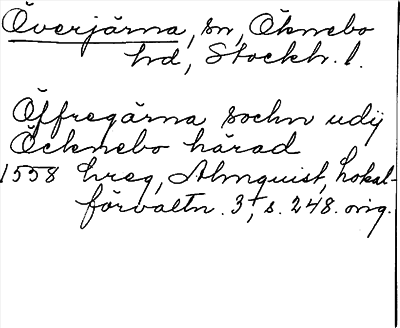 Överjärna, sn, Öknebo
hd, Stockh. l.
Öffregärna sochn udij
Öcknebo härad
1558 hreg, Almquist, Lokal-
förvaltn. 3, s. 248. orig.